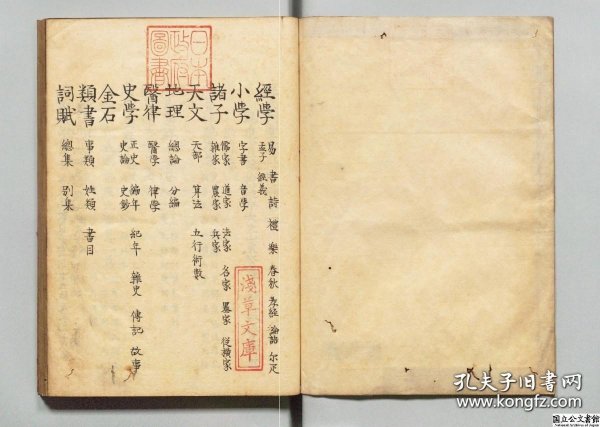 經学 易 書 詩 禮 樂 春秋 孝經 論語 尔疋
孟子 經義
小学 字書 音学
諸子 儒家 道家 法家 名家 墨家 従横家
雑家 農家 兵家
天文 天部 算法 五行術数
地理 總論 分編
醫律 醫学 律学
史学 正史 編年 紀年 雜史 傳記 故事
史論 史鈔
金石
類書 事類 姓類 書目
詞賦 總集 別集
日本
政府
圖書
淺草文庫
孔夫子旧书网
www.kongfz.com
国立公文書館
National Archives of Japan